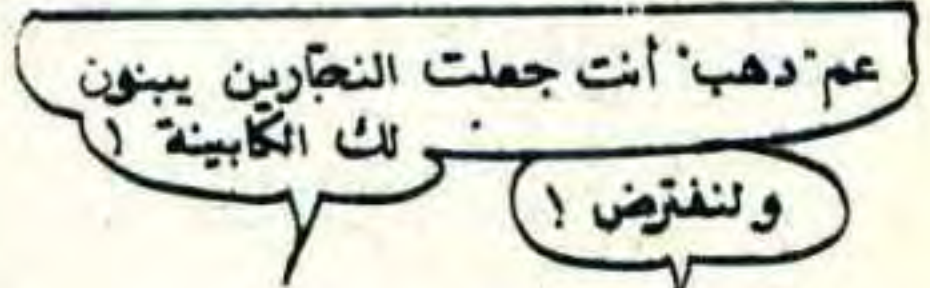 عم "دهب" أنت جعلت النجّارين يبنون
لك الكابينة !
ولنفترض !